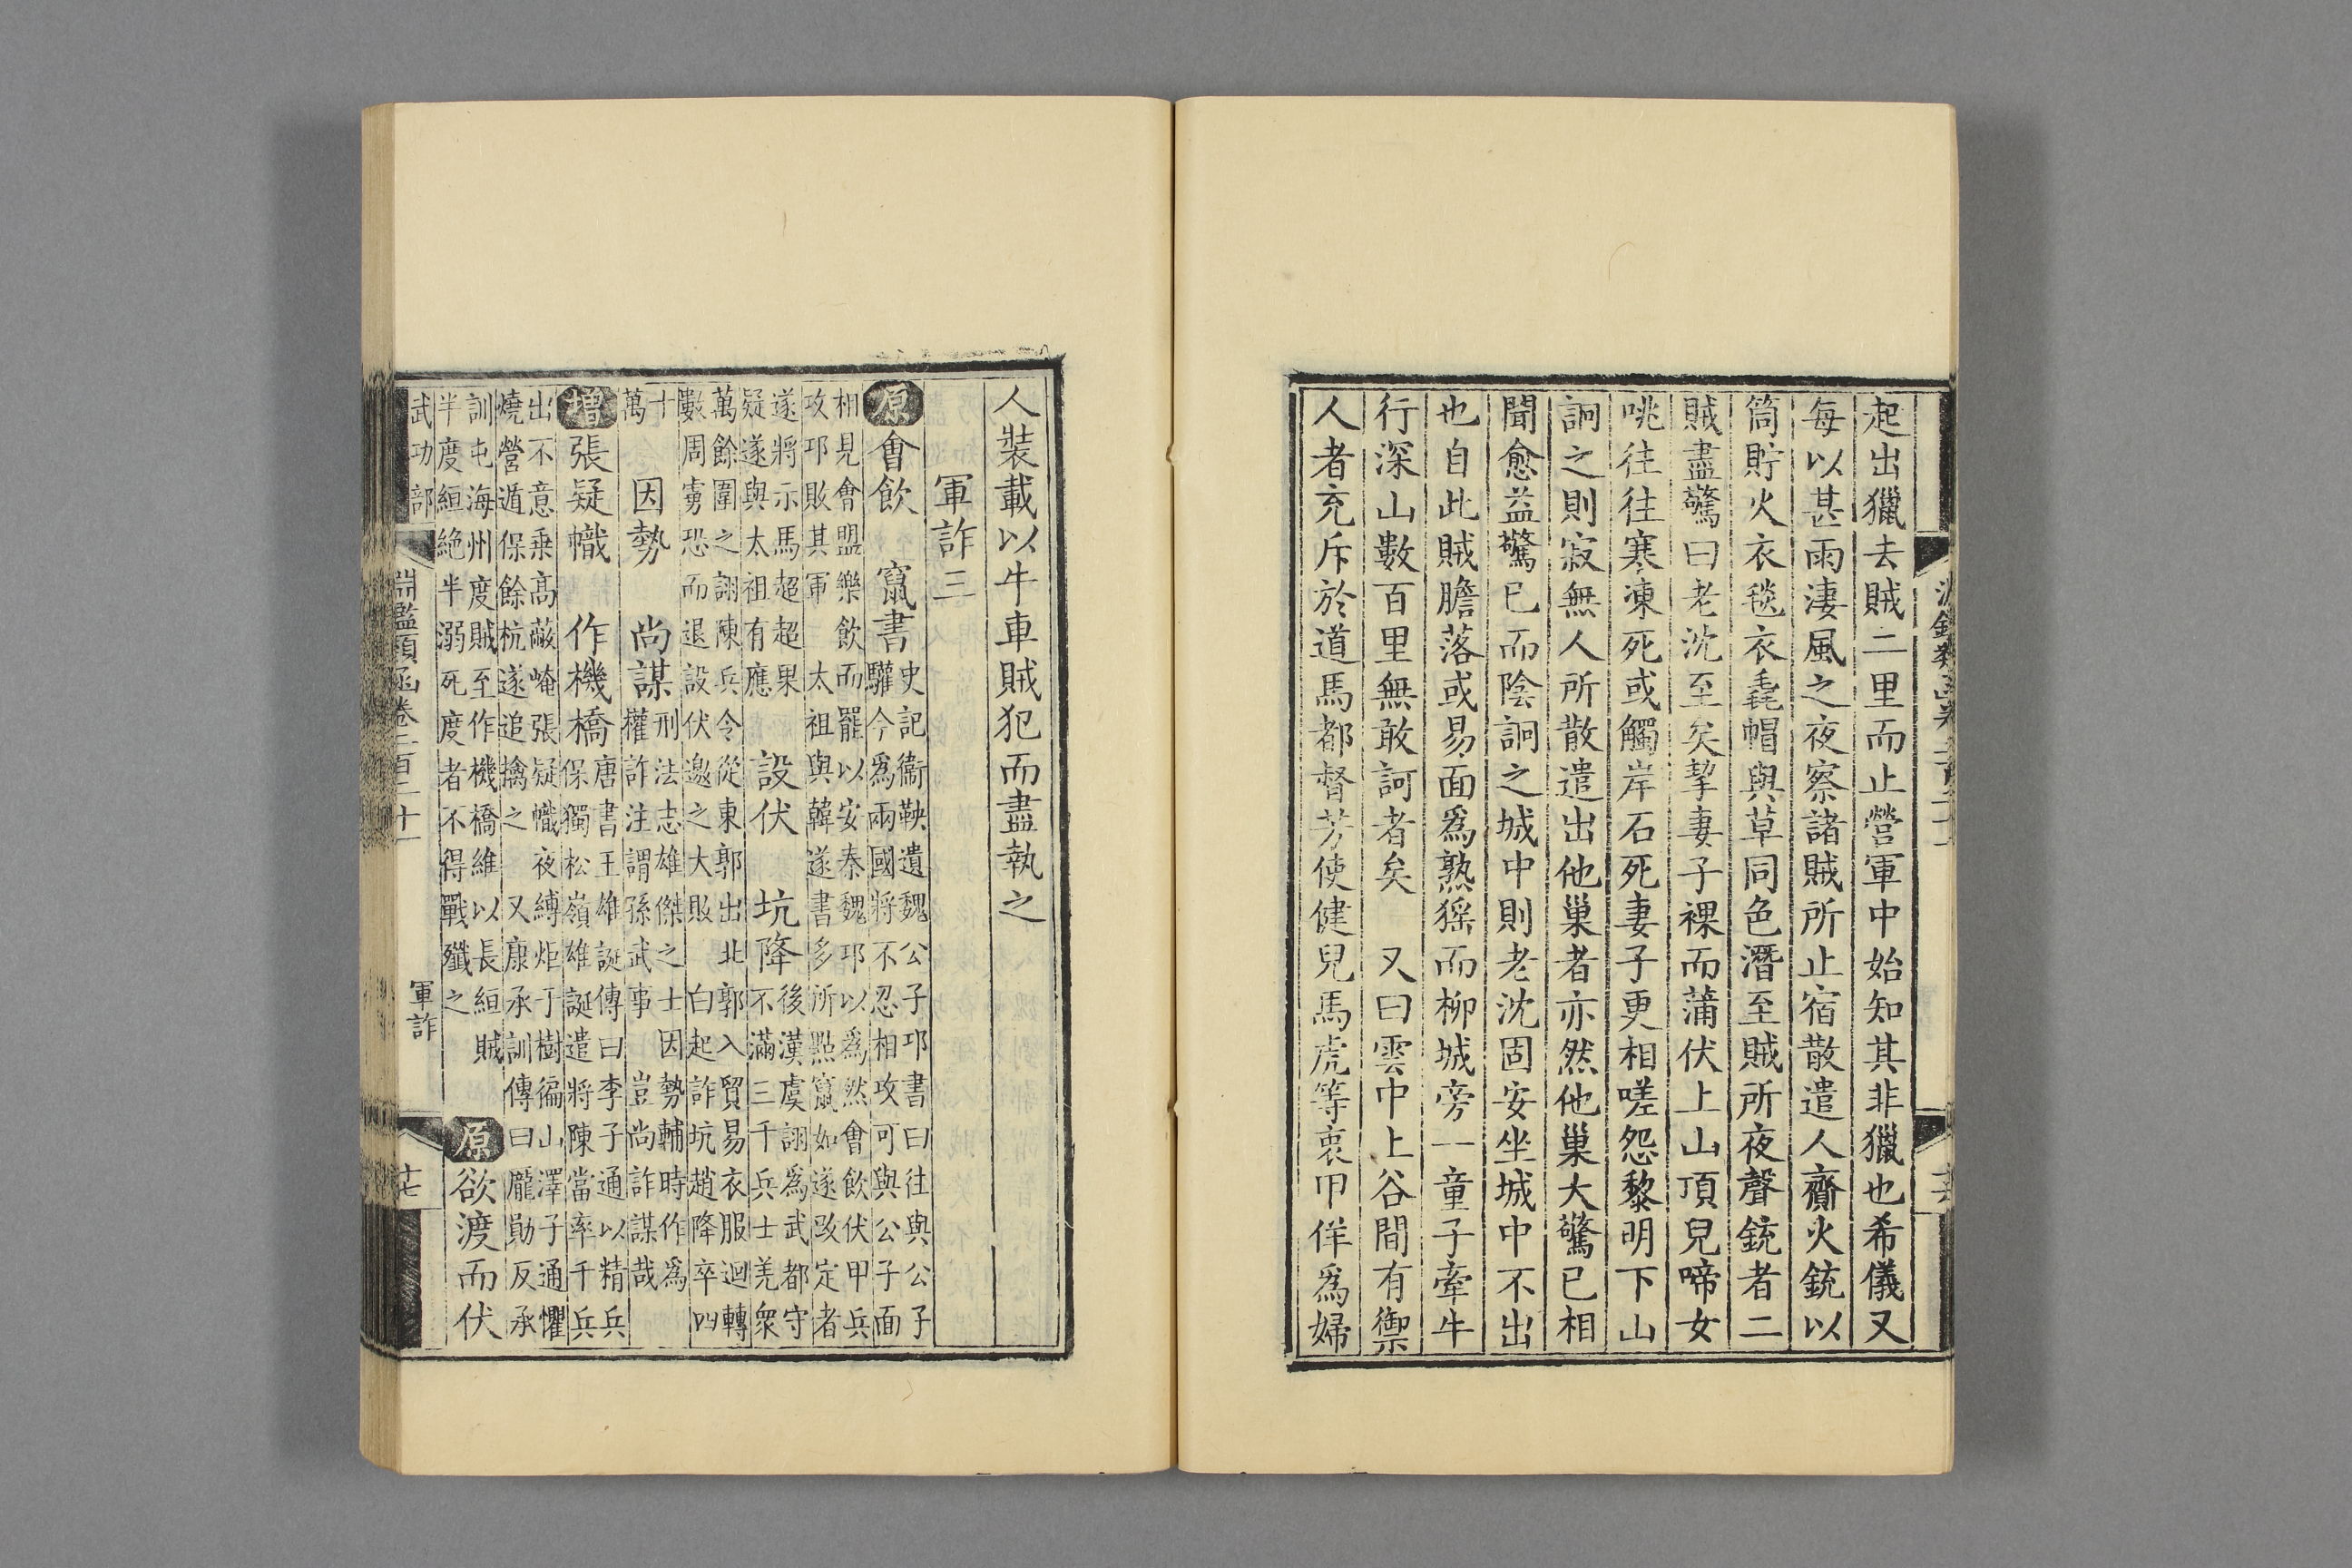 起出獵去賊二里而止營軍中始知其非獵也希儀又
每以甚雨淒風之夜察諸賊所止宿散遣人齎火銃以
筒貯火衣毯衣毳帽與草同色潛至賊所夜聲銃者二
賊盡驚曰老沈至矣挈妻子裸而蒲伏上山頂兒啼女
咷往往寒凍死或觸岸石死妻子更相嗟怨黎明下山
詗之則寂無人所散遣出他巢者亦然他巢大驚已相
聞愈益驚已而陰詗之城中則老沈固安坐城中不出
也自此賊膽落或易面爲熟猺而柳城旁一童子牽牛
行深山數百里無敢訶者矣 又曰雲中上谷間有禦
人者充斥於道馬都督芳使健兒馬虎等衷甲佯爲婦
人裝載以牛車賊犯而盡執之
軍詐三
原 會飲 竄書 史記衞鞅遺魏公子卭書曰往與公子
驩今爲兩國將不忍相攻可與公子面
相見會盟樂飲而罷以安秦魏卭以爲然會飲伏甲兵
攻卭敗其軍 太祖與韓遂書多所點竄如遂改定者
遂將示馬超超果
疑遂與太祖有應 設伏 坑降 後漢虞詡爲武都守
不滿三千兵士羌衆
萬餘圍之詡陳兵令從東郭出北郭入貿易衣服迴轉
數周虜恐而退設伏邀之大敗 白起詐坑趙降卒四
十
萬 因勢 尚謀 刑法志雄傑之士因勢輔時作爲
權詐注謂孫武事 豈尚詐謀哉
增 張疑幟 作機橋 唐書王雄誕傳曰李子通以精兵
保獨松嶺雄誕遣將陳當率千兵
出不意乗高蔽崦張疑幟夜縛炬于樹徧山澤子通懼
燒營遁保餘杭遂追擒之 又康承訓傳曰龐勛反承
訓屯海州度賊至作機橋維以長絙賊
半度絙絶半溺死度者不得戰殲之 原 欲渡而伏
武功部 淵鑑類函卷二百二十一 軍詐 十七